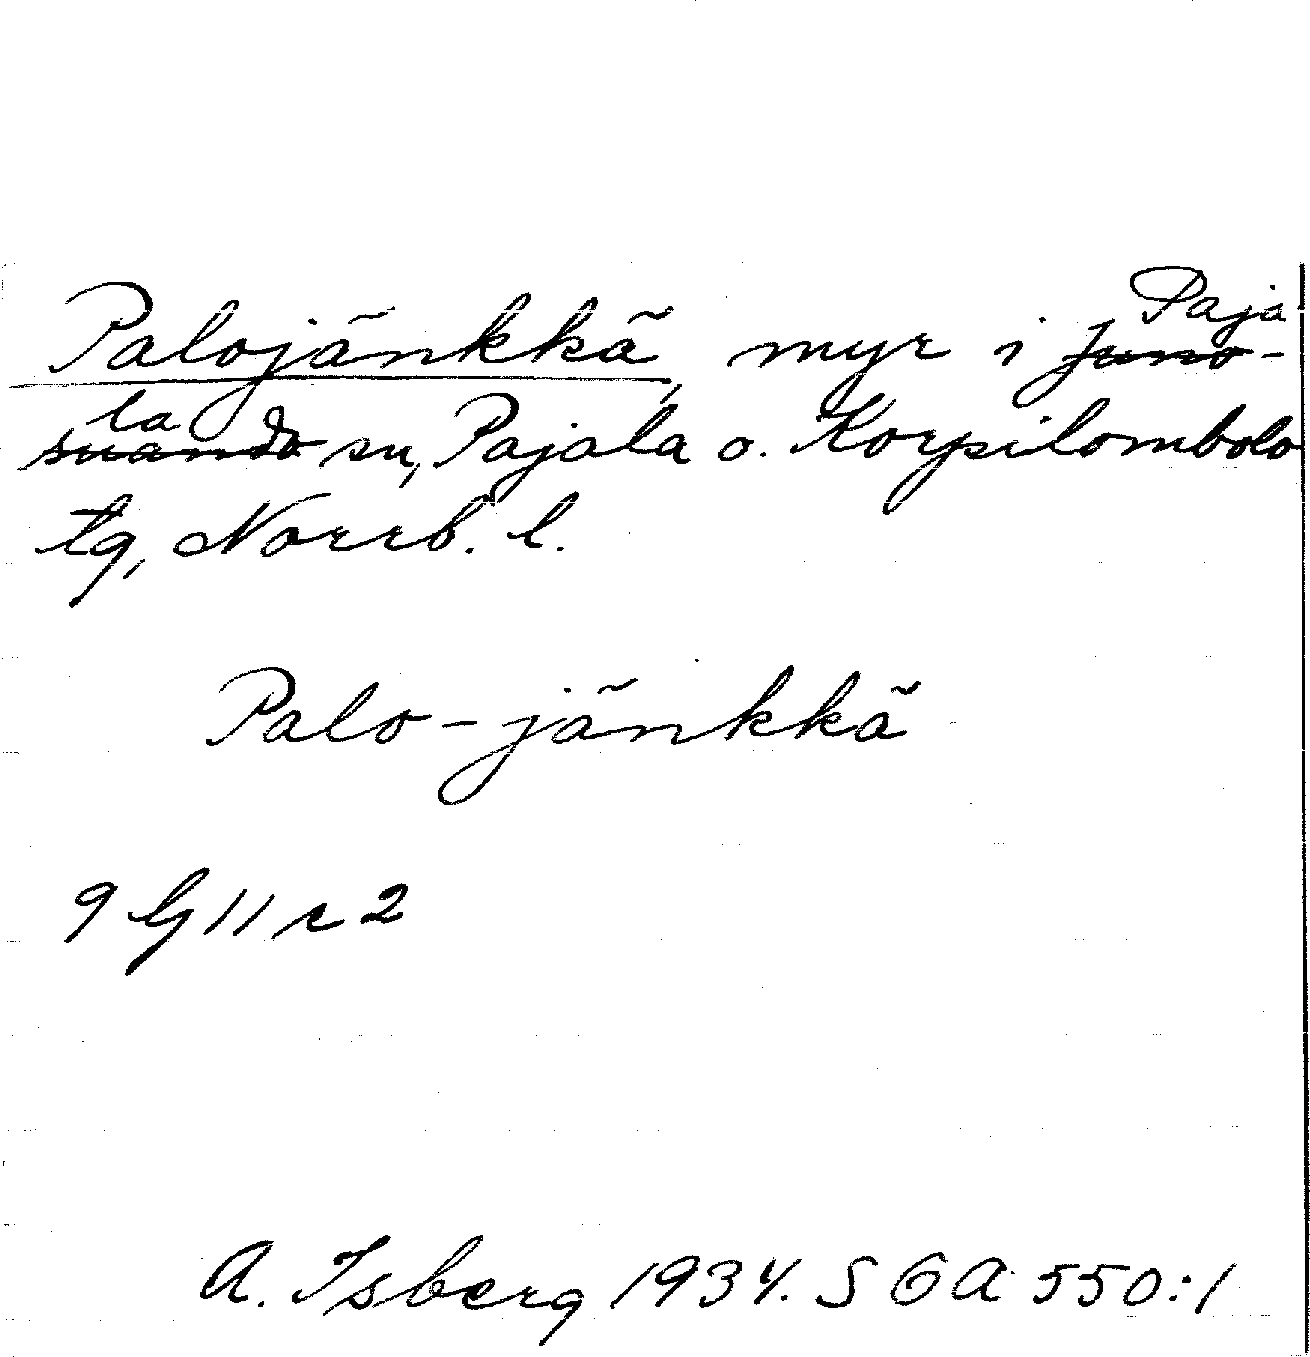 Palojänkkä, myr i Paja
la sn, Pajala o. Korpilombolo
tg, Norrb. l.
Palo-jänkkä
9 11 r 2
A. Isberg 1934. SOA 550:1